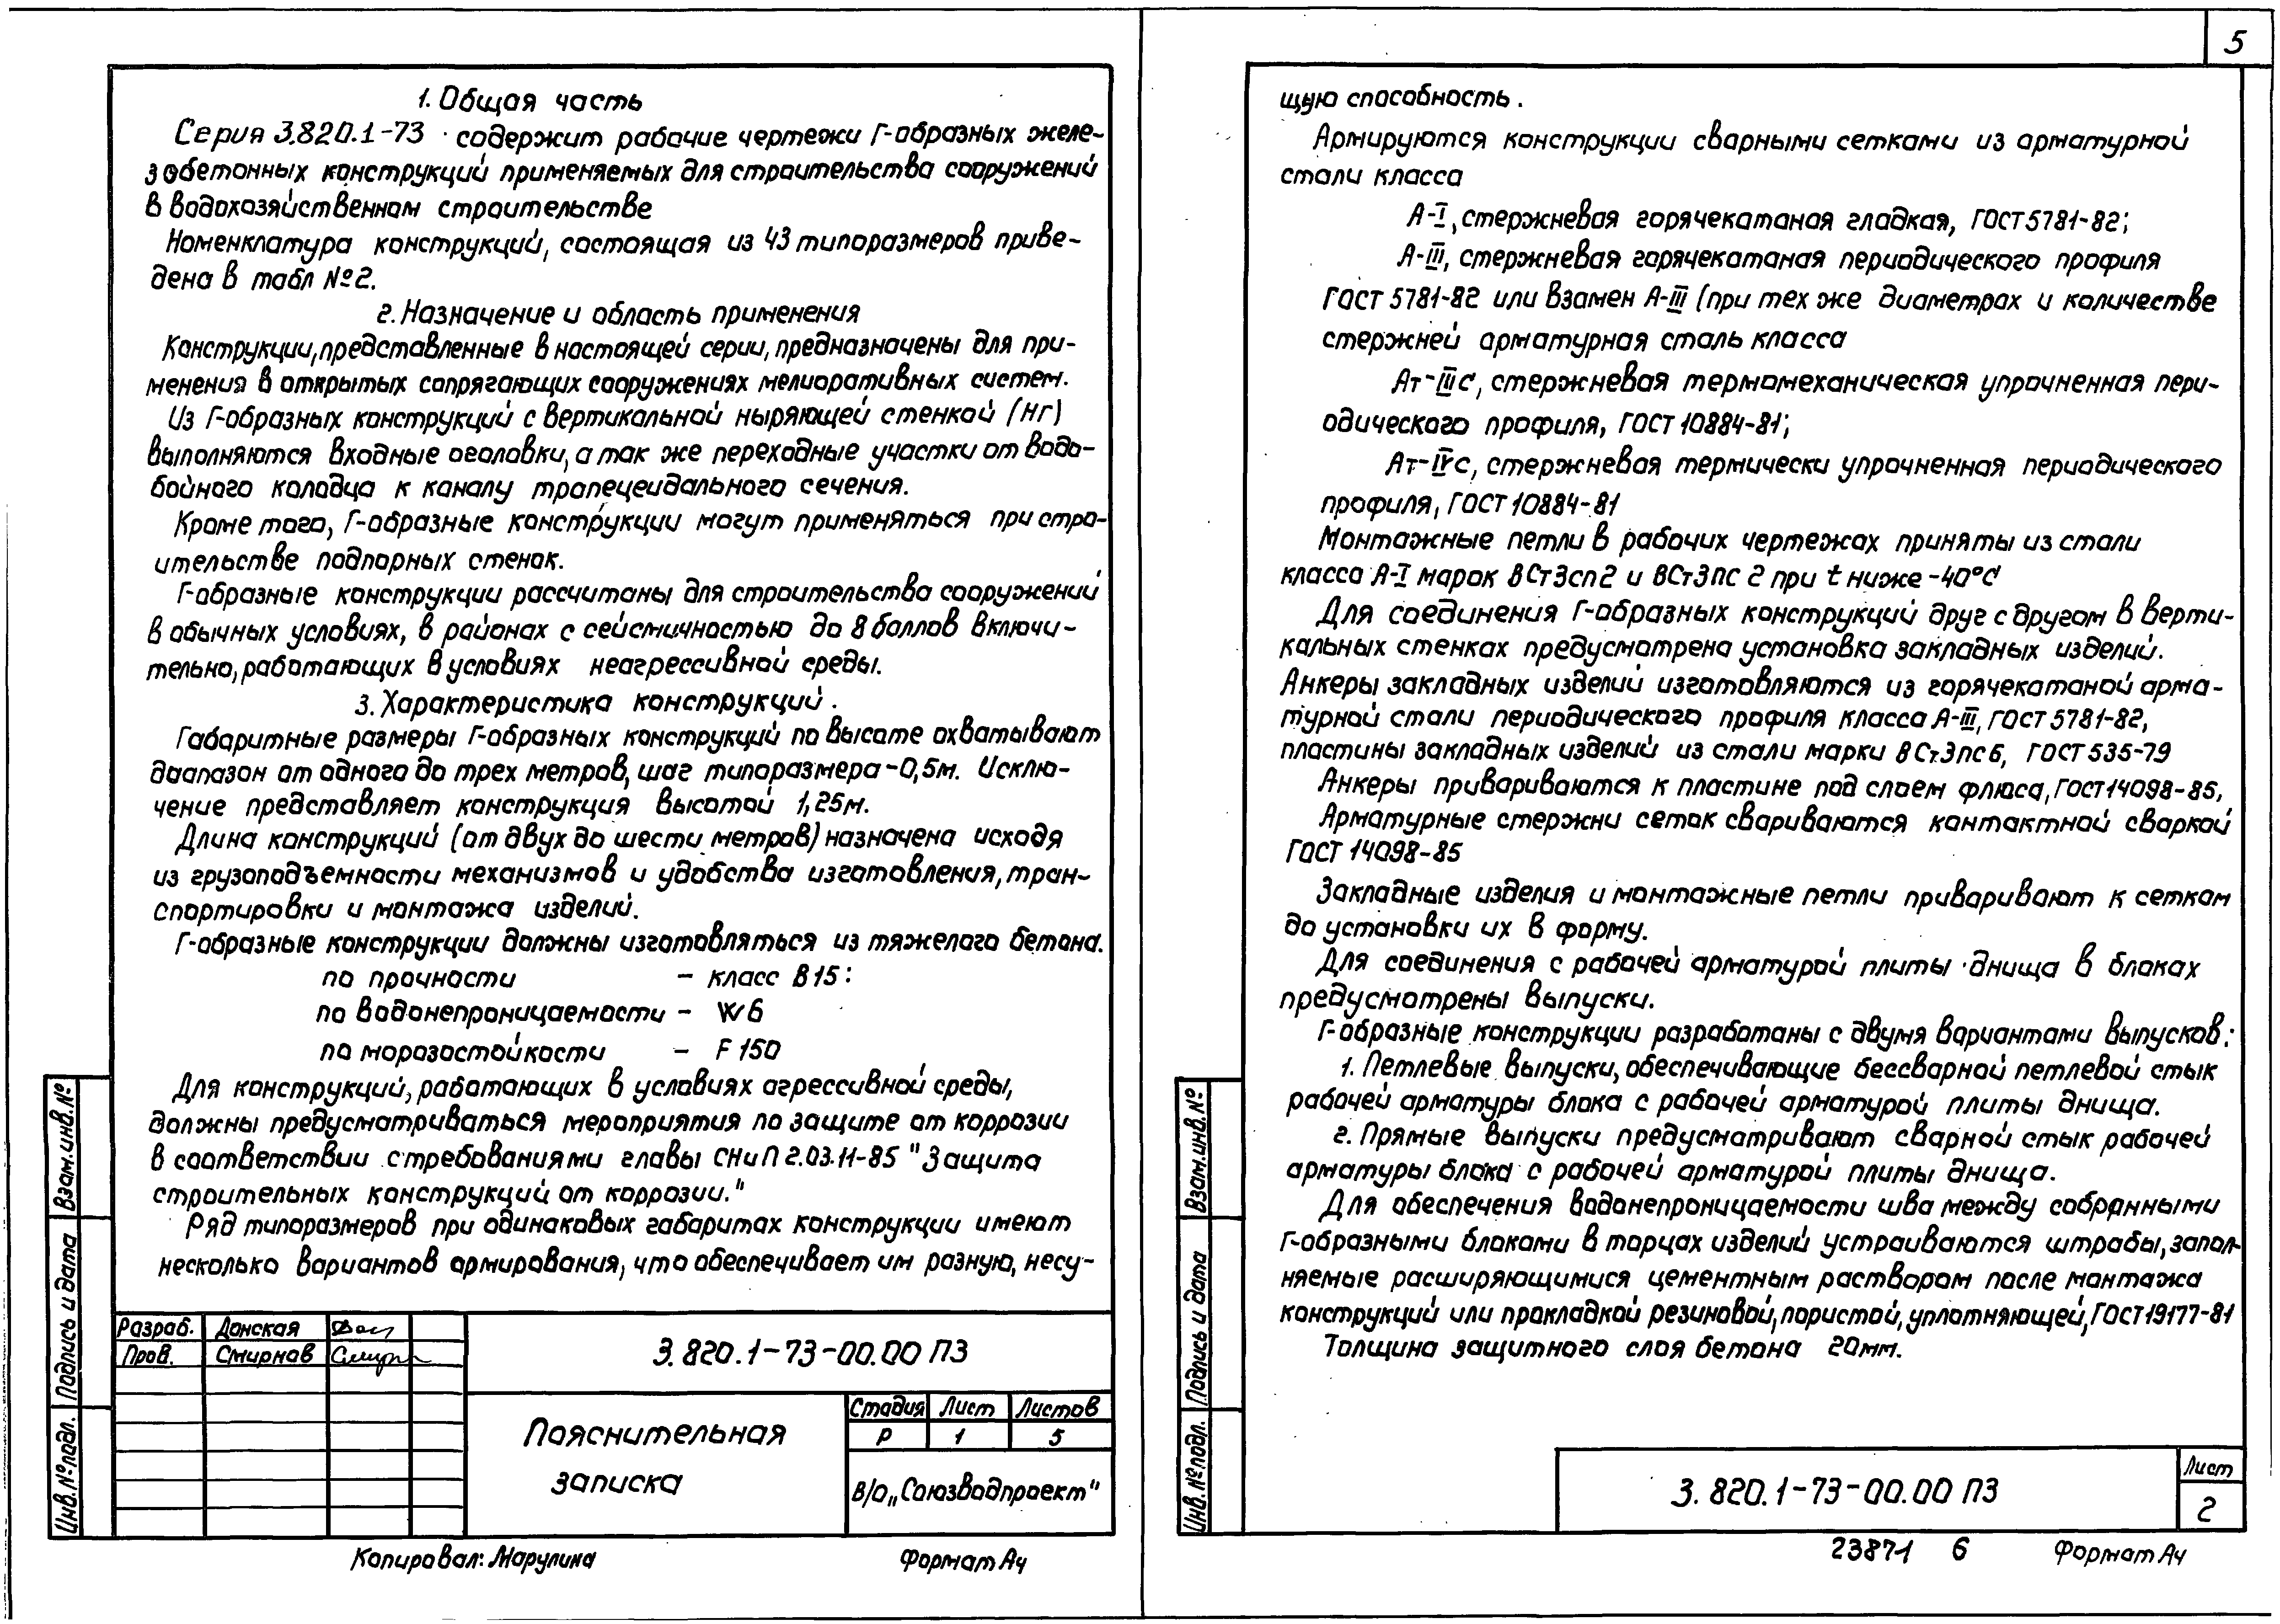 1. Общая часть
Серия 3.820.1-73 содержит рабочие чертежи Г-образных желе-
зобетонных конструкций применяемых для строительства сооружений
в водохозяйственном строительстве
Номенклатура конструкций, состоящая из 43 типоразмеров приве-
дена в табл №2.
2. Назначение и область применения
Конструкции, представленные в настоящей серии, предназначены для при-
менения в открытых сопрягающих сооружениях мелиоративных систем.
Из Г-образных конструкций с вертикальной ныряющей стенкой (НГ)
выполняются входные оголовки, а так же переходные участки от водо-
бойного колодца к каналу трапецеидального сечения.
Кроме того, Г-образные конструкции могут применяться при стро-
ительстве подпорных стенок.
Г-образные конструкции рассчитаны для строительства сооружений
в обычных условиях, в районах с сейсмичностью до 8 баллов включи-
тельно, работающих в условиях неагрессивной среды.
3. Характеристика конструкций.
Габаритные размеры Г-образных конструкций по высоте охватывают
диапазон от одного до трех метров, шаг типоразмера-0,5м. Исклю-
чение представляет конструкция высотой 1,25м.
Длина конструкций (от двух до шести метров) назначена исходя
из грузоподъемности механизмов и удобства изготовления, тран-
спортировки и монтажа изделий.
Г-образные конструкции должны изготовляться из тяжелого бетона.
по прочности - класс В15:
по водонепроницаемости - W6
по морозостойкости - F150
Для конструкций, работающих в условиях агрессивной среды,
должны предусматриваться мероприятия по защите от коррозии
в соответствии с требованиями главы СНиП 2.03.11-85 "Защита
строительных конструкций от коррозии."
Ряд типоразмеров при одинаковых габаритах конструкции имеют
несколько вариантов армирования, что обеспечивает им разную, несу-
Разраб. Донская
Пров. Смирнов
3.820.1-73-00.00 ПЗ
Пояснительная
записка
Стадия Лист Листов
Р 1 5
В/О „Союзводпроект"
Взам.инв.№
Подпись и дата
Инв.№подл.
Копировал: Марулина
Формат А4
5
щую способность.
Армируются конструкции сварными сетками из арматурной
стали класса
А-I, стержневая горячекатаная гладкая, ГОСТ 5781-82;
А-III, стержневая горячекатаная периодического профиля
ГОСТ 5781-82 или взамен А-III (при тех же диаметрах и количестве
стержней арматурная сталь класса
Ат-IIIс, стержневая термомеханическая упрочненная пери-
одического профиля, ГОСТ 10884-81;
Ат-IVс, стержневая термически упрочненная периодического
профиля, ГОСТ 10884-81
Монтажные петли в рабочих чертежах приняты из стали
класса А-I марок ВСт3сп2 и ВСт3пс 2 при t ниже -40°С
Для соединения Г-образных конструкций друг с другом в верти-
кальных стенках предусмотрена установка закладных изделий.
Анкеры закладных изделий изготовляются из горячекатаной арма-
турной стали периодического профиля класса А-III, ГОСТ 5781-82,
пластины закладных изделий из стали марки ВСт.3пс6, ГОСТ 535-79
Анкеры привариваются к пластине под слоем флюса, ГОСТ14098-85,
Арматурные стержни сеток свариваются контактной сваркой
ГОСТ 14098-85
Закладные изделия и монтажные петли приваривают к сеткам
до установки их в форму.
Для соединения с рабочей арматурой плиты днища в блоках
предусмотрены выпуски.
Г-образные конструкции разработаны с двумя вариантами выпусков:
1. Петлевые выпуски, обеспечивающие бессварной петлевой стык
рабочей арматуры блока с рабочей арматурой плиты днища.
2. Прямые выпуски предусматривают сварной стык рабочей
арматуры блока с рабочей арматурой плиты днища.
Для обеспечения водонепроницаемости шва между собранными
Г-образными блоками в торцах изделий устраиваются штрабы, запол-
няемые расширяющимися цементным раствором после монтажа
конструкций или прокладкой резиновой, пористой, уплотняющей, ГОСТ19177-81
Толщина защитного слоя бетона 20мм.
Взам.инв.№
Подпись и дата
Инв.№подл.
3.820.1-73-00.00 ПЗ
Лист
2
23871 6
Формат А4